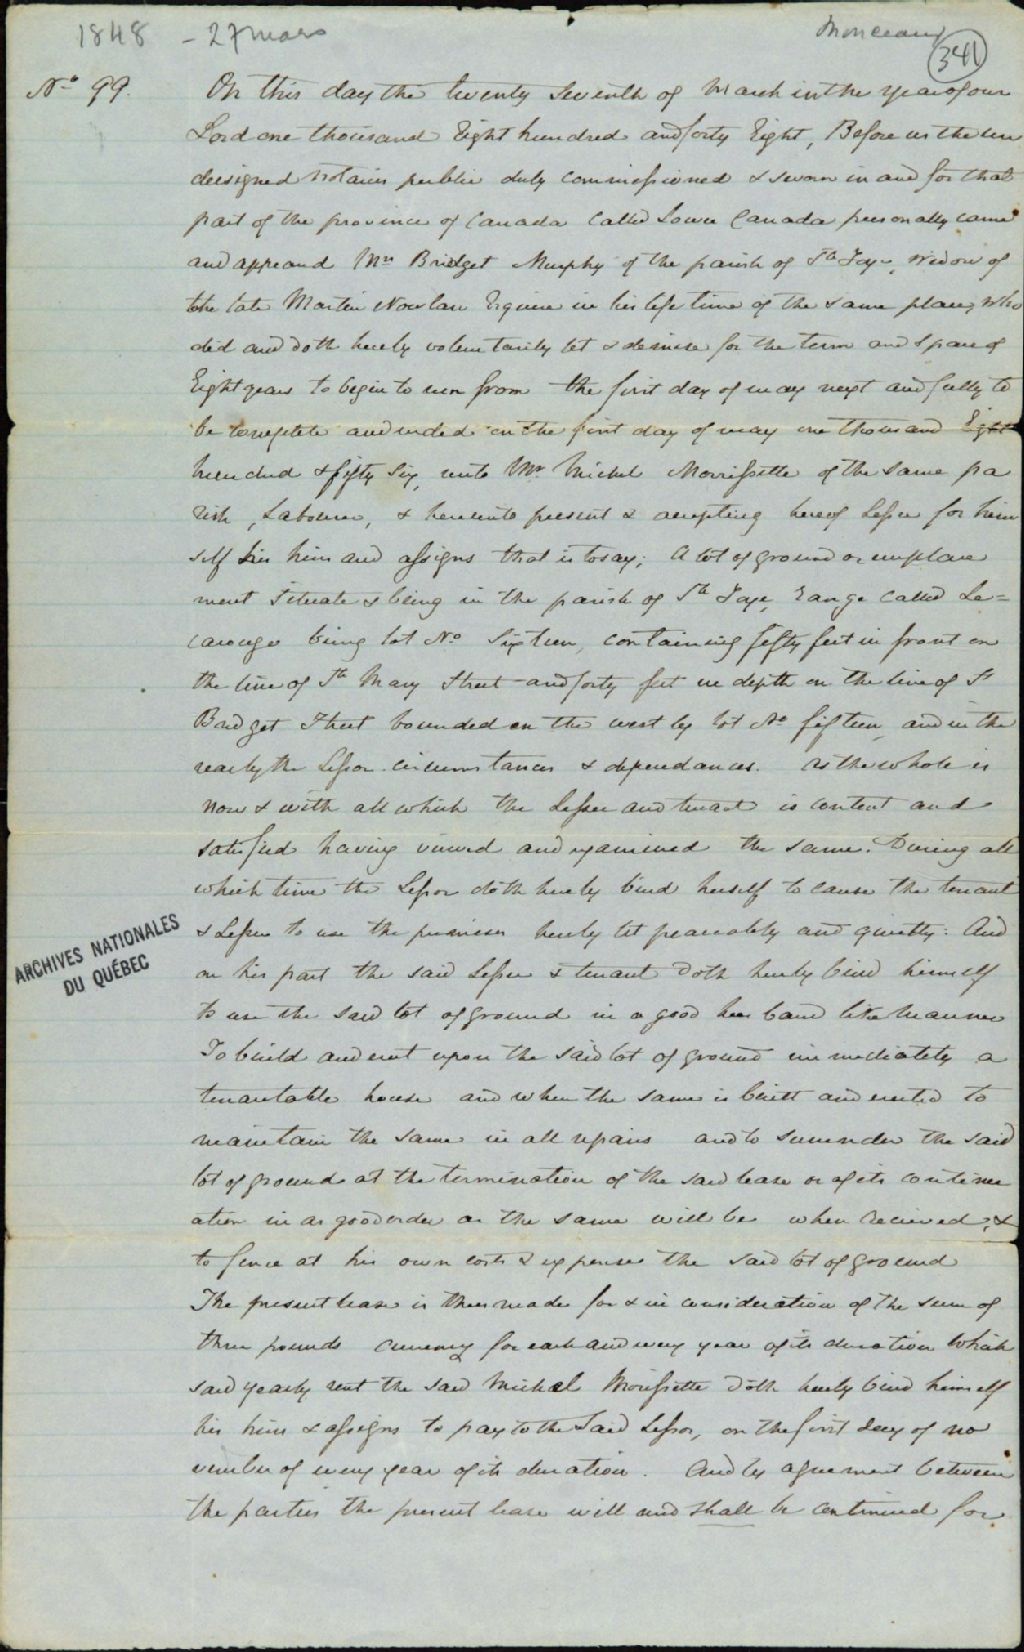 1848 - 27 mars
Monceau
341
No 99.
On this day the twenty seventh of March in the year of our
Lord one thousand Eight hundred and forty Eight, Before us the un
dersigned notaries public duly commissioned & sworn in and for that
part of the province of Canada called Lower Canada personally came
and appeard Mrs Bridget Murphy of the parish of St Foye, Widow of
the late Martin Nowlan Esquire in his life time of the same place, who
did and doth hereby voluntarily let & demise for the term and space of
Eight years to begin to run from the first day of may next and fully to
be complete and ended on the first day of may one thousand Eight
hundred & fifty Six, unto Mr. Michel Morrissette of the same pa
rish, Labourer, & hereunto present & accepting hereof Lessee for him
self his heirs and assigns that is to say; A lot of ground or emplace
ment Situate & being in the parish of St Foye, range called Le=
carouge being lot No Sixteen, containing fifty feet in front on
the line of St Mary Street and forty feet in depth on the line of St
Bridget Street bounded on the west by lot No fifteen, and in the
rear by the Lessor circumstances & dependances. As the whole is
now & with all which the Lessee and tenant is content and
satisfied having viewed and examined the same. During all
which time the Lessor doth hereby bind herself to cause the tenant
& Lessee to use the premises hereby let peaceably and quietly. And
on his part the said Lessee & tenant doth hereby bind himself
to use the said lot of ground in a good husband like manner
To build and erect upon the said lot of ground immediately a
tenantable house and when the same is built and erected to
maintain the same in all repairs and to surrender the said
lot of ground at the termination of the said lease or of its continu
ation in as good order as the same will be when recieved, &
to fence at his own costs & expense the said lot of ground
The present lease is thus made for & in consideration of the sum of
three pounds currency for each and every year of its duration Which
said yearly rent the said Michel Morissette doth hereby bind himself
his heirs & assigns to pay to the Said Lessor, on the first day of no
vember of every year of its duration. And by agreement between
the parties the present lease will and shall be continued for
ARCHIVES NATIONALES
DU QUÉBEC